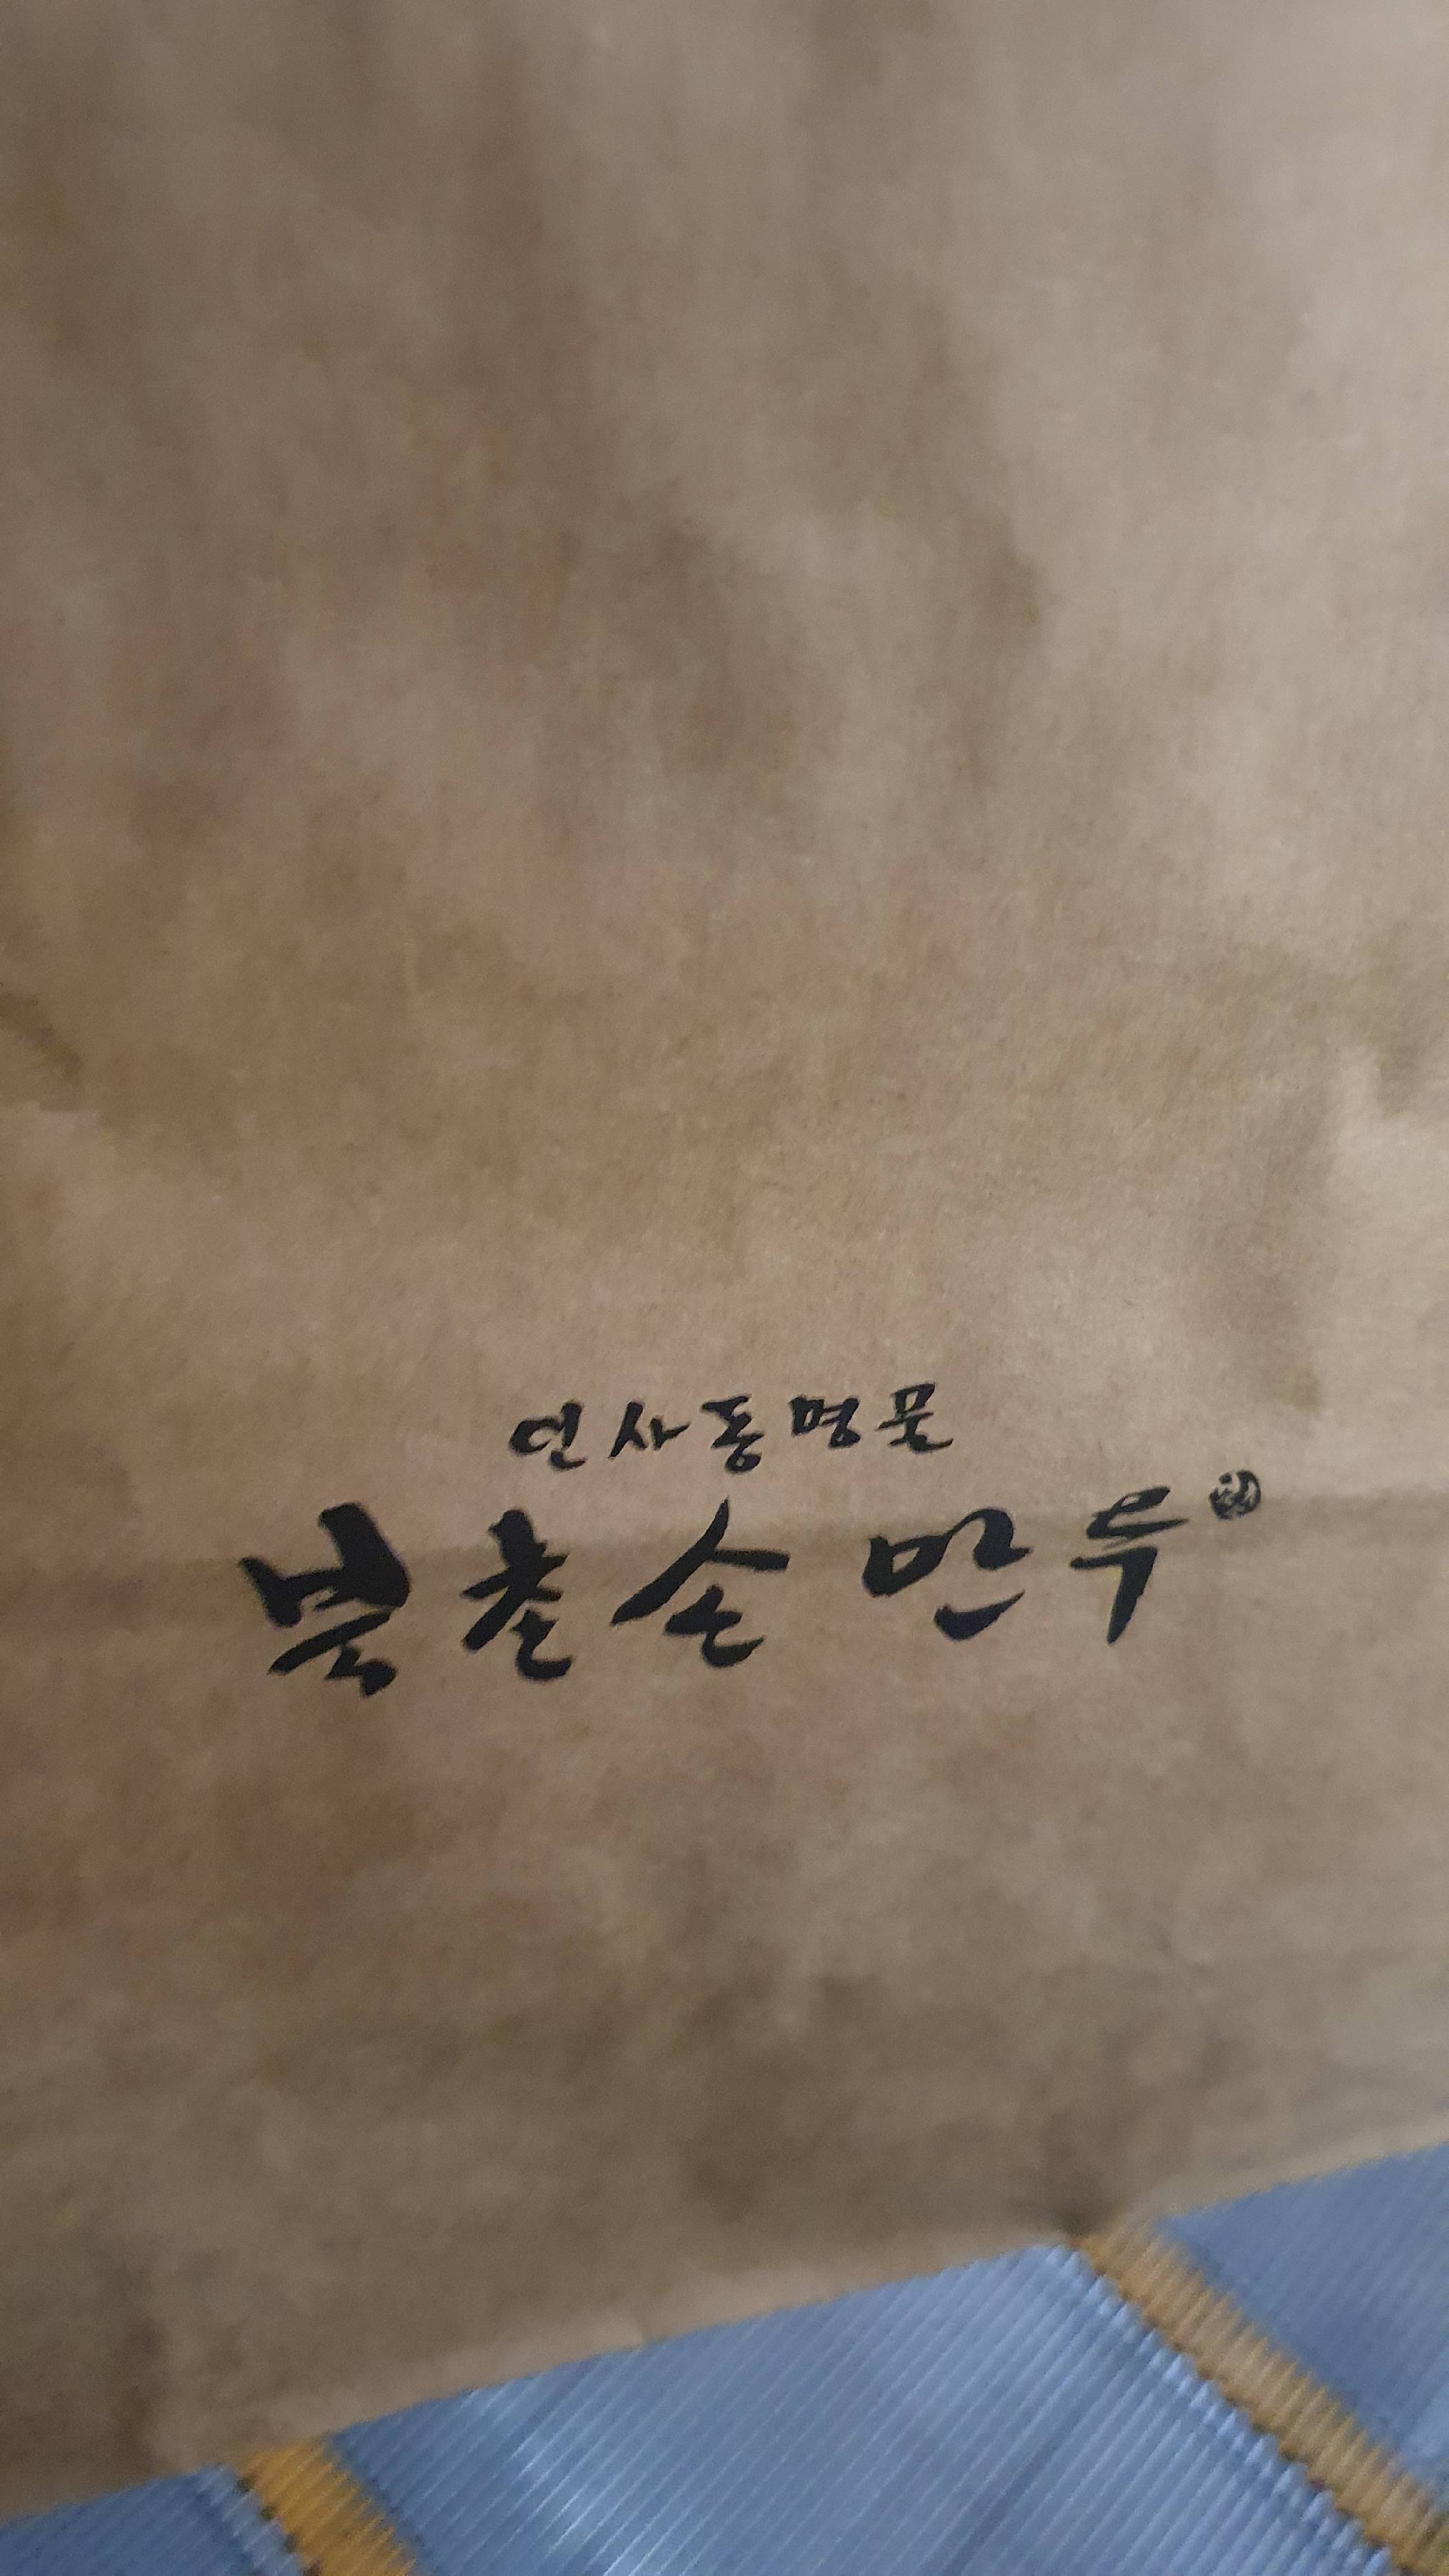 인사동명물
북촌손만두